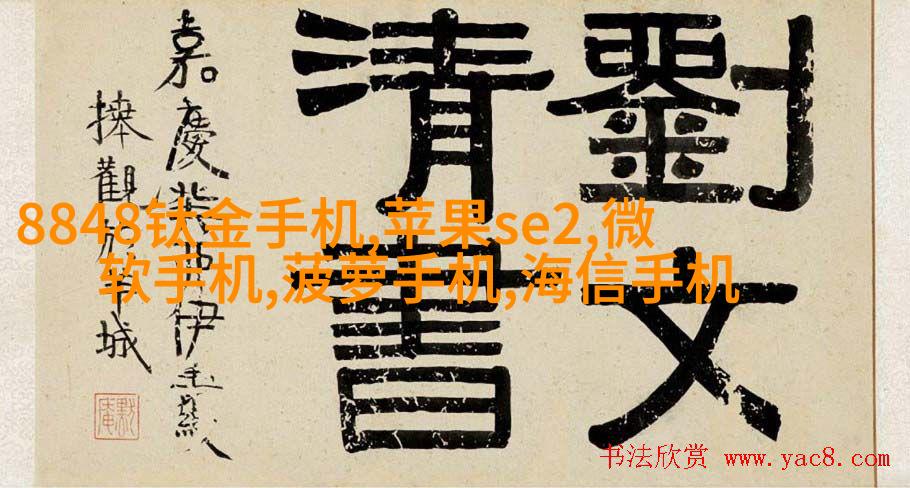 劉文
清書
嘉慶癸酉伊秉綬
捧觀於羊城
8848钛金手机,苹果se2,微
软手机,菠萝手机,海信手机
书法欣赏 www.yac8.com